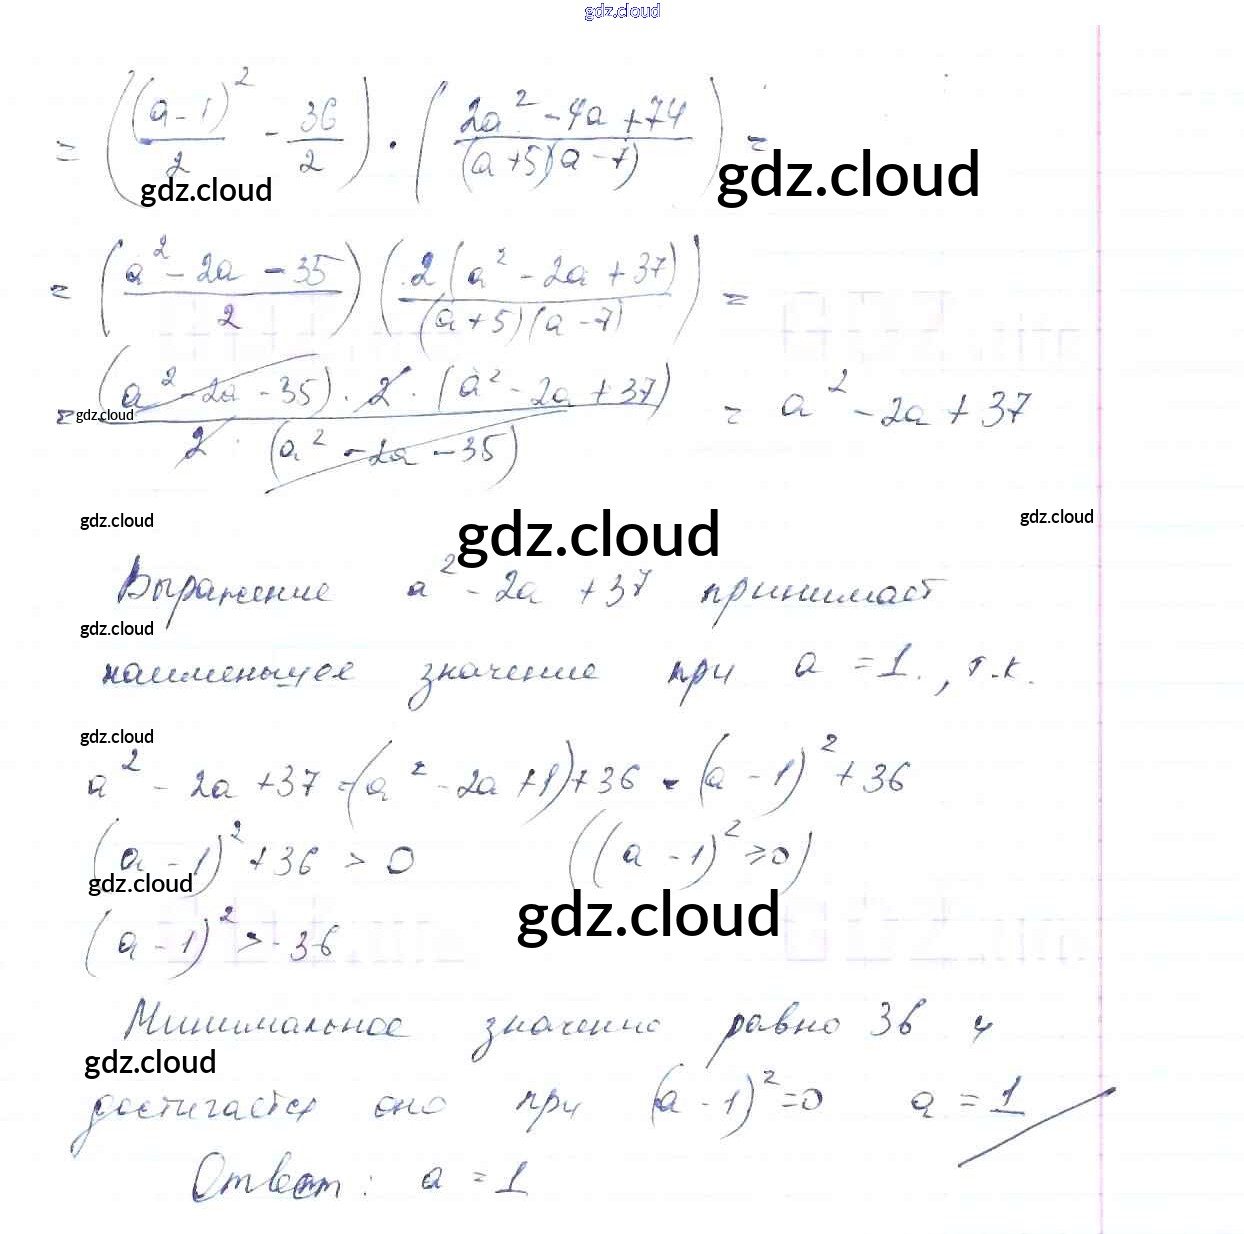 gdz.cloud
= ((a-1)²/2 - 36/2) · (2a² - 4a + 74/(a+5)(a-7)) =
gdz.cloud gdz.cloud
= (a² - 2a - 35/2) (2(a² - 2a + 37)/(a+5)(a-7)) =
= (a² - 2a - 35) · 2 · (a² - 2a + 37)/2 · (a² - 2a - 35) = a² - 2a + 37
gdz.cloud
gdz.cloud gdz.cloud gdz.cloud
Выражение a² - 2a + 37 принимает
gdz.cloud
наименьщее значение при a = 1., т.к.
gdz.cloud
a² - 2a + 37 = (a² - 2a + 1) + 36 = (a - 1)² + 36
(a - 1)² + 36 > 0 ((a - 1)² ≥ 0)
gdz.cloud gdz.cloud
(a - 1)² > - 36
Минимальное значение равно 36 и
gdz.cloud
достигается оно при (a - 1)² = 0 a = 1
Ответ: a = 1